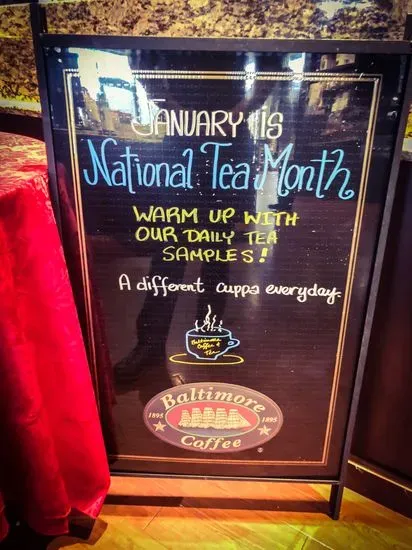 January is
National Tea Month
Warm up with
our daily tea
samples!
A different cuppa everyday.
Baltimore
Coffee &
Tea
Baltimore
1895 1895
Coffee ®